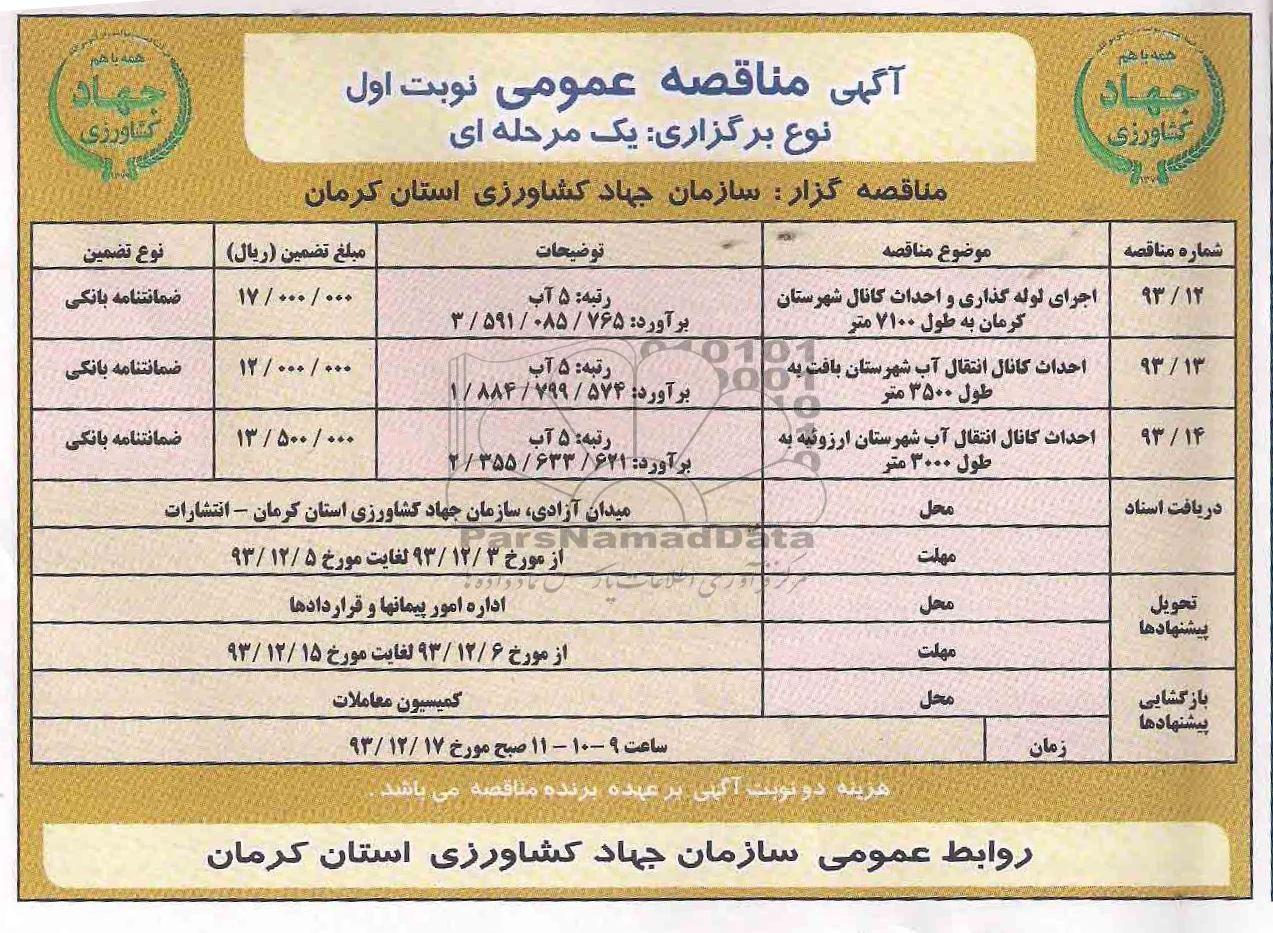 همه با هم
جهاد
کشاورزی
آگهی مناقصه عمومی نوبت اول
نوع برگزاری: یک مرحله ای
همه با هم
جهاد
کشاورزی
مناقصه گزار: سازمان جهاد کشاورزی استان کرمان
شماره مناقصه موضوع مناقصه توضیحات مبلغ تضمین (ریال) نوع تضمین
۹۳/۱۲ اجرای لوله گذاری و احداث کانال شهرستان رتبه: ۵ آب ۱۷/۰۰۰/۰۰۰ ضمانتنامه بانکی
کرمان به طول ۷۱۰۰ متر برآورد: ۳/۵۹۱/۰۸۵/۷۶۵
۹۳/۱۳ احداث کانال انتقال آب شهرستان بافت به رتبه: ۵ آب ۱۲/۰۰۰/۰۰۰ ضمانتنامه بانکی
طول ۳۵۰۰ متر برآورد: ۱/۸۸۴/۷۹۹/۵۷۴
۹۳/۱۴ احداث کانال انتقال آب شهرستان ارزوئیه به رتبه: ۵ آب ۱۳/۵۰۰/۰۰۰ ضمانتنامه بانکی
طول ۳۰۰۰ متر برآورد: ۲/۳۵۵/۶۳۳/۶۲۱
دریافت اسناد محل میدان آزادی، سازمان جهاد کشاورزی استان کرمان – انتشارات
مهلت از مورخ ۹۳/۱۲/۳ لغایت مورخ ۹۳/۱۲/۵
تحویل پیشنهادها محل اداره امور پیمانها و قراردادها
مهلت از مورخ ۹۳/۱۲/۶ لغایت مورخ ۹۳/۱۲/۱۵
بازگشایی پیشنهادها محل کمیسیون معاملات
زمان ساعت ۹ -۱۰ - ۱۱ صبح مورخ ۹۳/۱۲/۱۷
ParsNamadData
هزینه دو نوبت آگهی بر عهده برنده مناقصه می باشد.
روابط عمومی سازمان جهاد کشاورزی استان کرمان